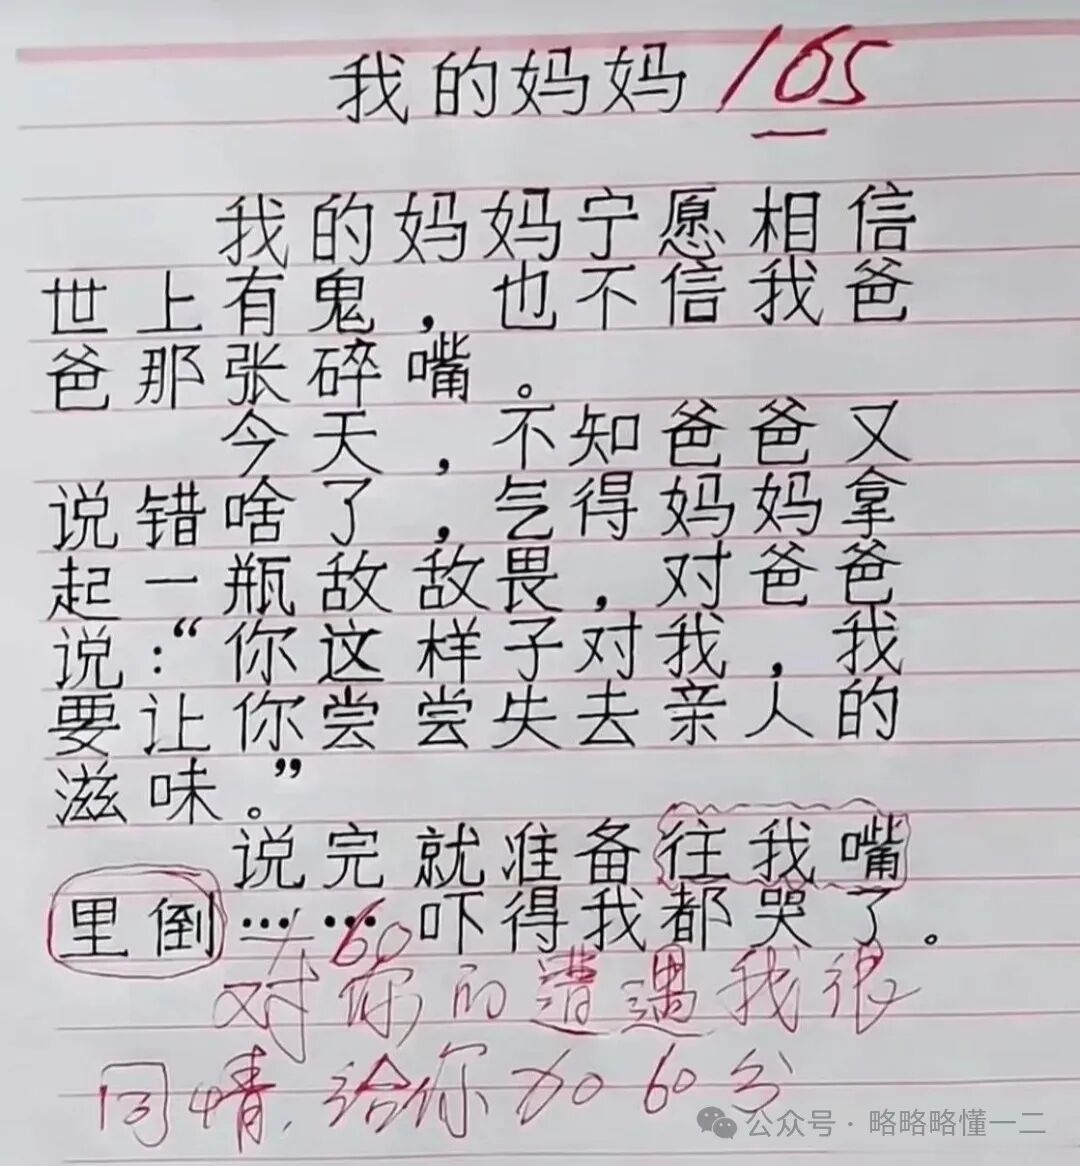 我的妈妈 105
我的妈妈宁愿相信
世上有鬼，也不信我爸
爸那张碎嘴。
今天，不知爸爸又
说错啥了，气得妈妈拿
起一瓶敌敌畏，对爸爸
说：“你这样子对我，我
要让你尝尝失去亲人的
滋味。”
说完就准备往我嘴
里倒……吓得我都哭了。
+60
对你的遭遇我很
同情，给你加60分
公众号·略略略懂一二